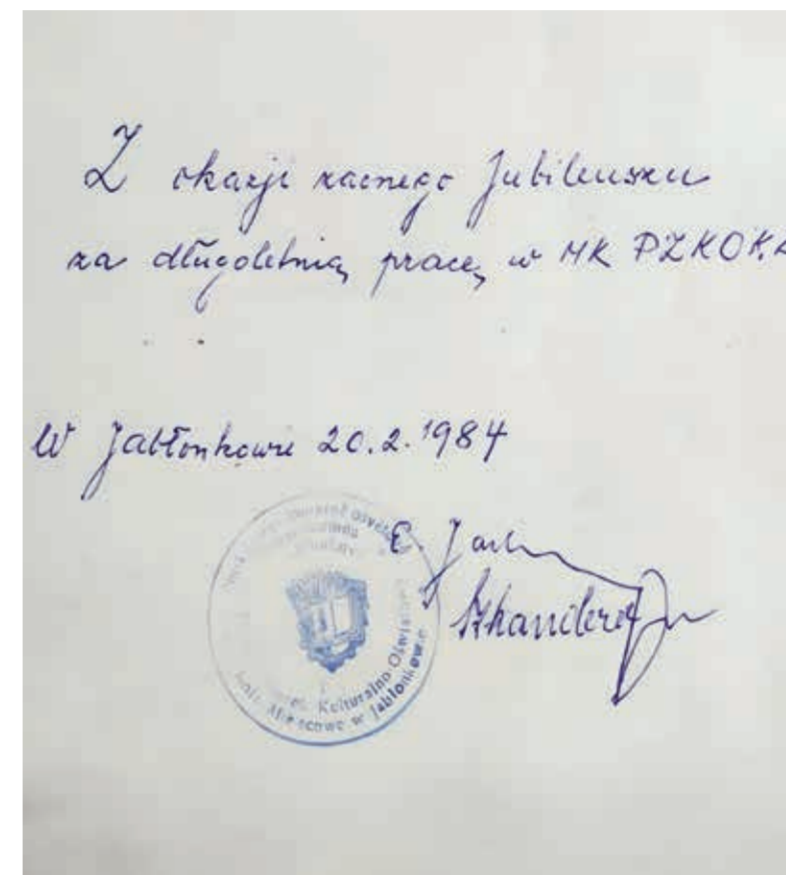 Z okazji zacnego Jubileuszu
za długoletnią pracę w MK PZKO
W Jabłonkowie 20.2.1984
E.
Szkandera
Kulturalno-Oświatowy
Koło Miejscowe w Jabłonkowie